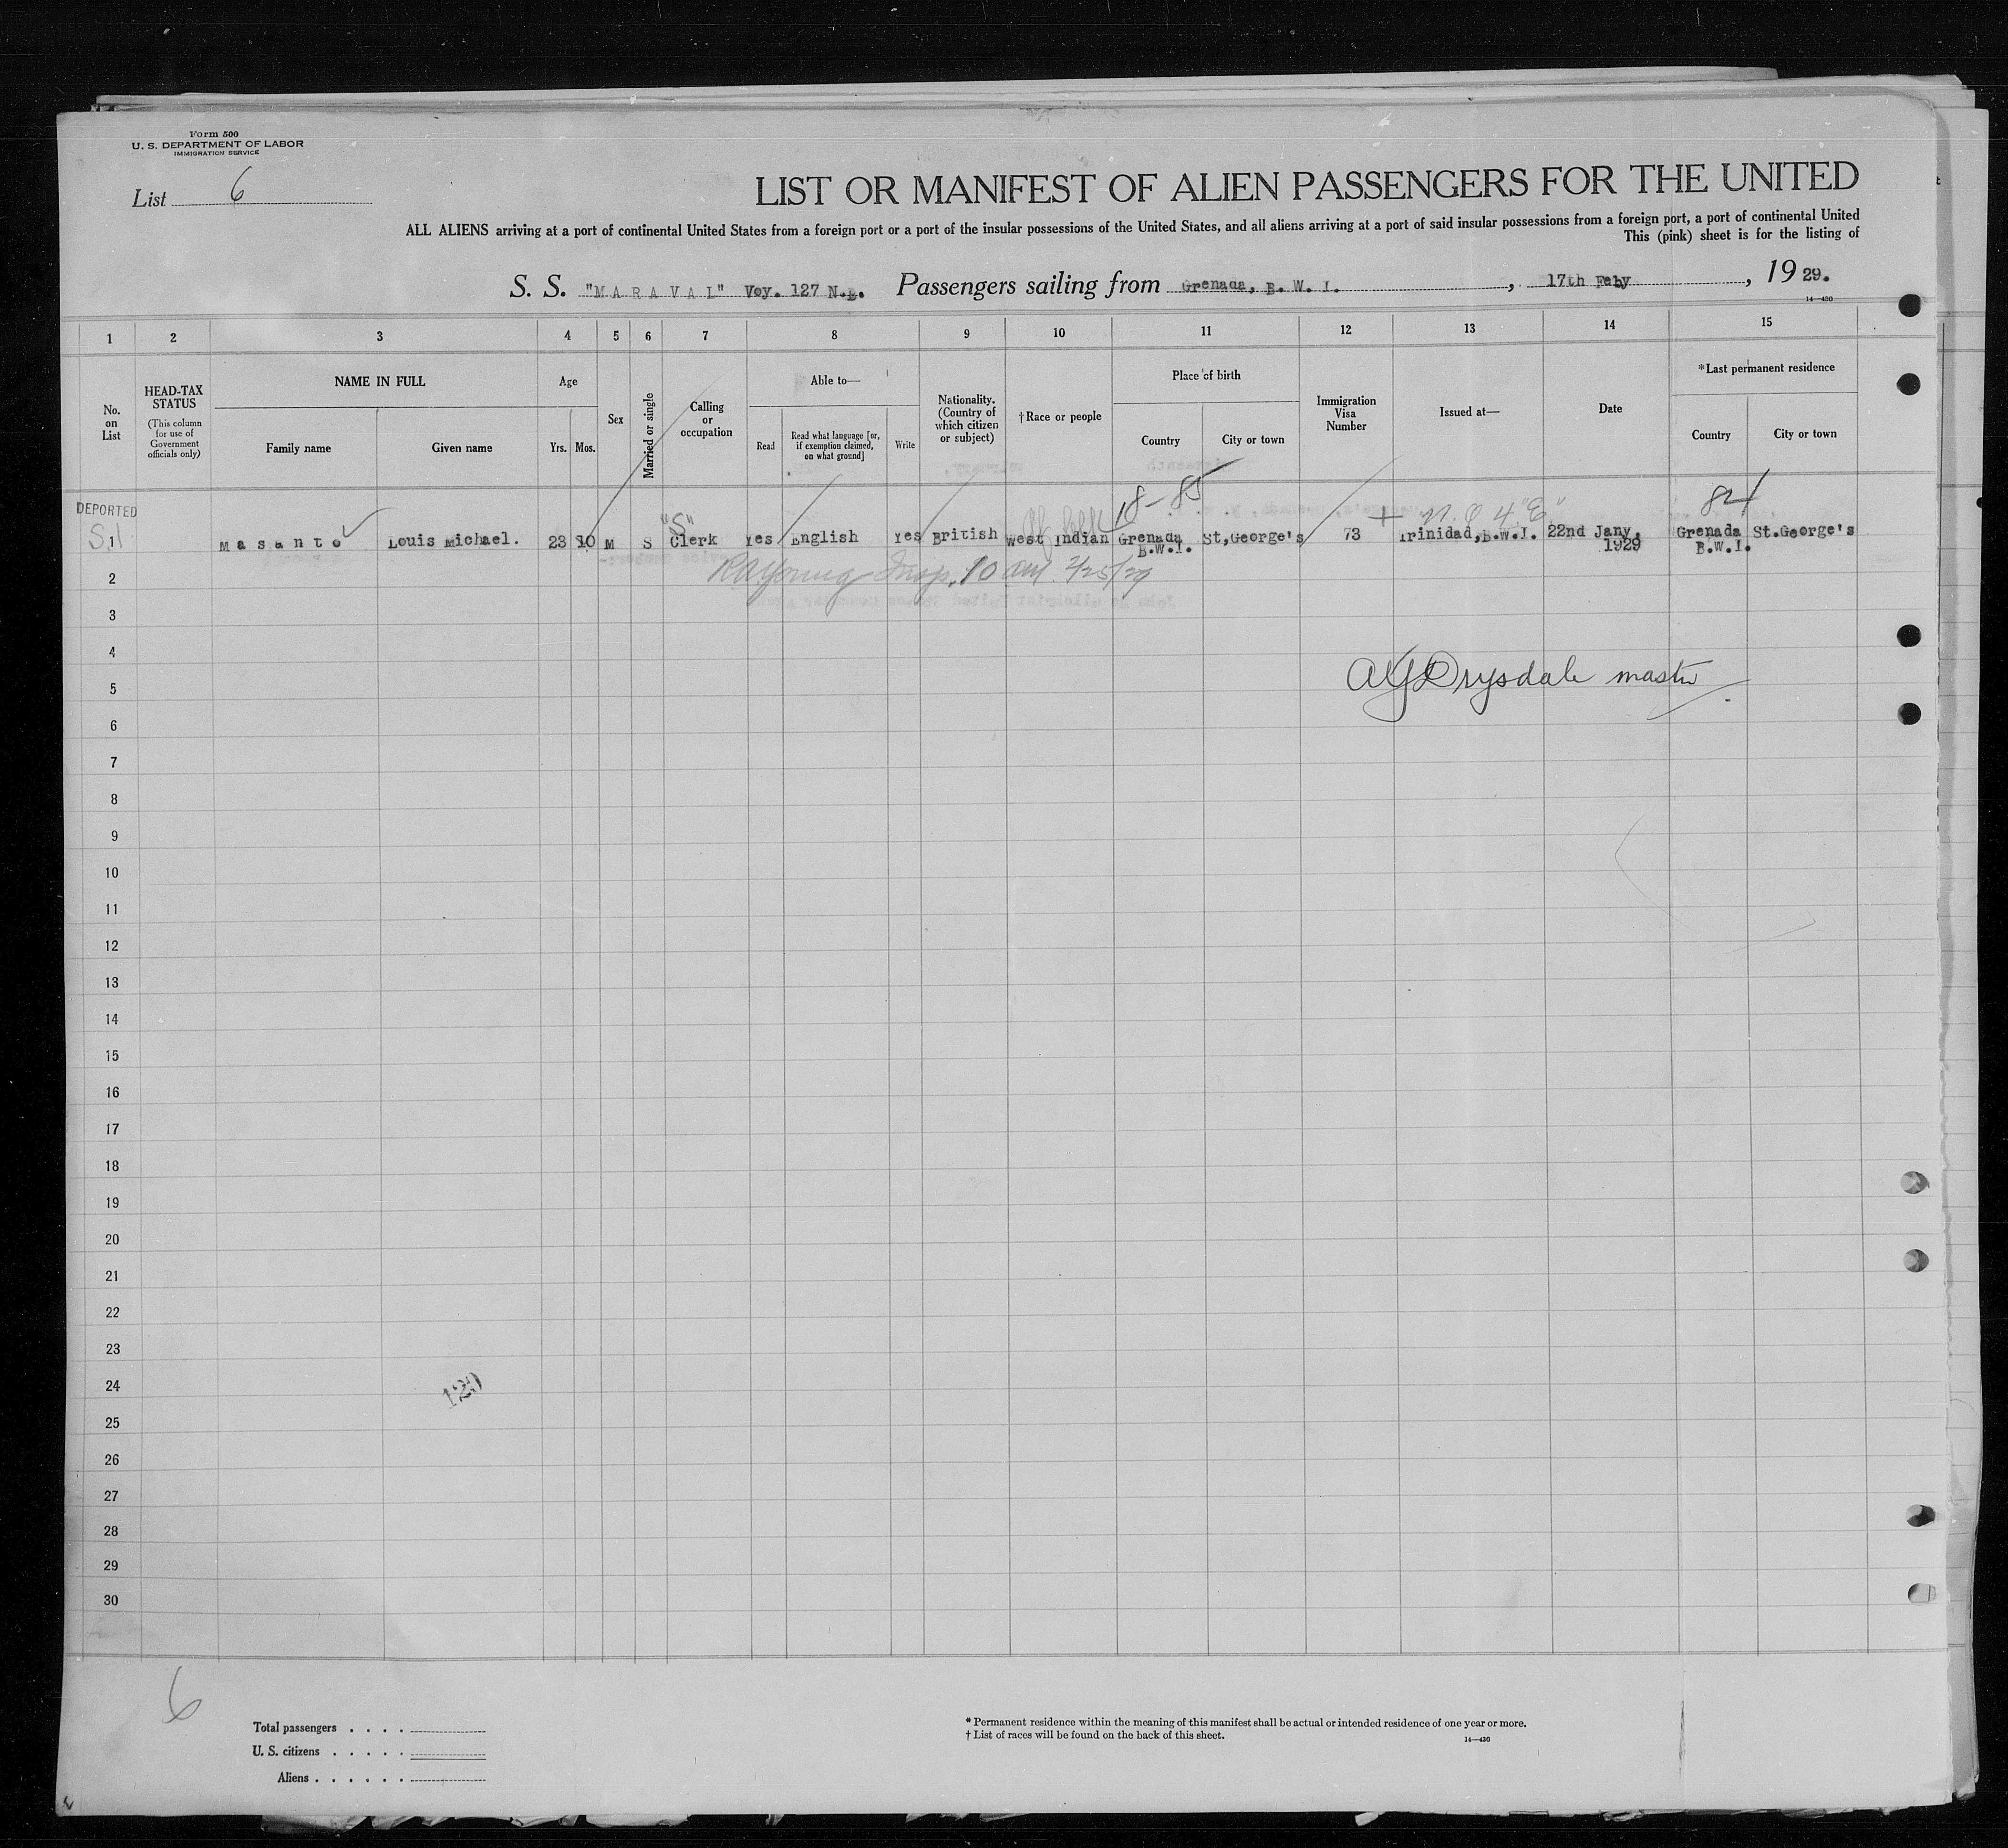 Form 500
U. S. DEPARTMENT OF LABOR
IMMIGRATION SERVICE
List 6
LIST OR MANIFEST OF ALIEN PASSENGERS FOR THE UNITED
ALL ALIENS arriving at a port of continental United States from a foreign port or a port of the insular possessions of the United States, and all aliens arriving at a port of said insular possessions from a foreign port, a port of continental United
This (pink) sheet is for the listing of
S. S. "MARAVAL" Voy. 127 N.B. Passengers sailing from Grenada, B. W. I. , 17th Feby , 19 29.
14—430
1 2 3 4 5 6 7 8 9 10 11 12 13 14 15
No. on List
HEAD-TAX STATUS
(This column for use of Government officials only)
NAME IN FULL
Family name
Given name
Age
Yrs.
Mos.
Sex
Married or single
Calling or occupation
Able to—
Read
Read what language [or, if exemption claimed, on what ground]
Write
Nationality. (Country of which citizen or subject)
†Race or people
Place of birth
Country
City or town
Immigration Visa Number
Issued at—
Date
*Last permanent residence
Country
City or town
DEPORTED
18-85
84
"S"
S.I Masanto Louis Michael. 23 10 M S Clerk Yes English Yes British West Indian Grenada B.W.I. St,George's 73 Trinidad,B.W.I. 22nd Jany, 1929 Grenada B.W.I. St.George's
RA Young Insp. 10 am 2/25/29
2
3
4
5
AG Drysdale master
6
7
8
9
10
11
12
13
14
15
16
17
18
19
20
21
22
23
24
120
25
26
27
28
29
30
6
Total passengers . . . .
U. S. citizens . . . . .
Aliens . . . . . .
* Permanent residence within the meaning of this manifest shall be actual or intended residence of one year or more.
† List of races will be found on the back of this sheet.
14—430